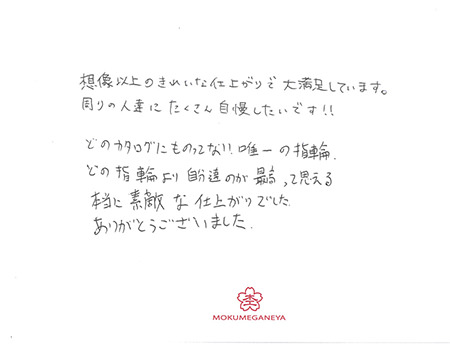 想像以上のきれいな仕上がりで大満足しています。
周りの人達にたくさん自慢したいです!!
どのカタログにものってない!唯一の指輪.
どの指輪より自分達のが最高って思える
本当に素敵な仕上がりでした.
ありがとうございました.
MOKUMEGANEYA